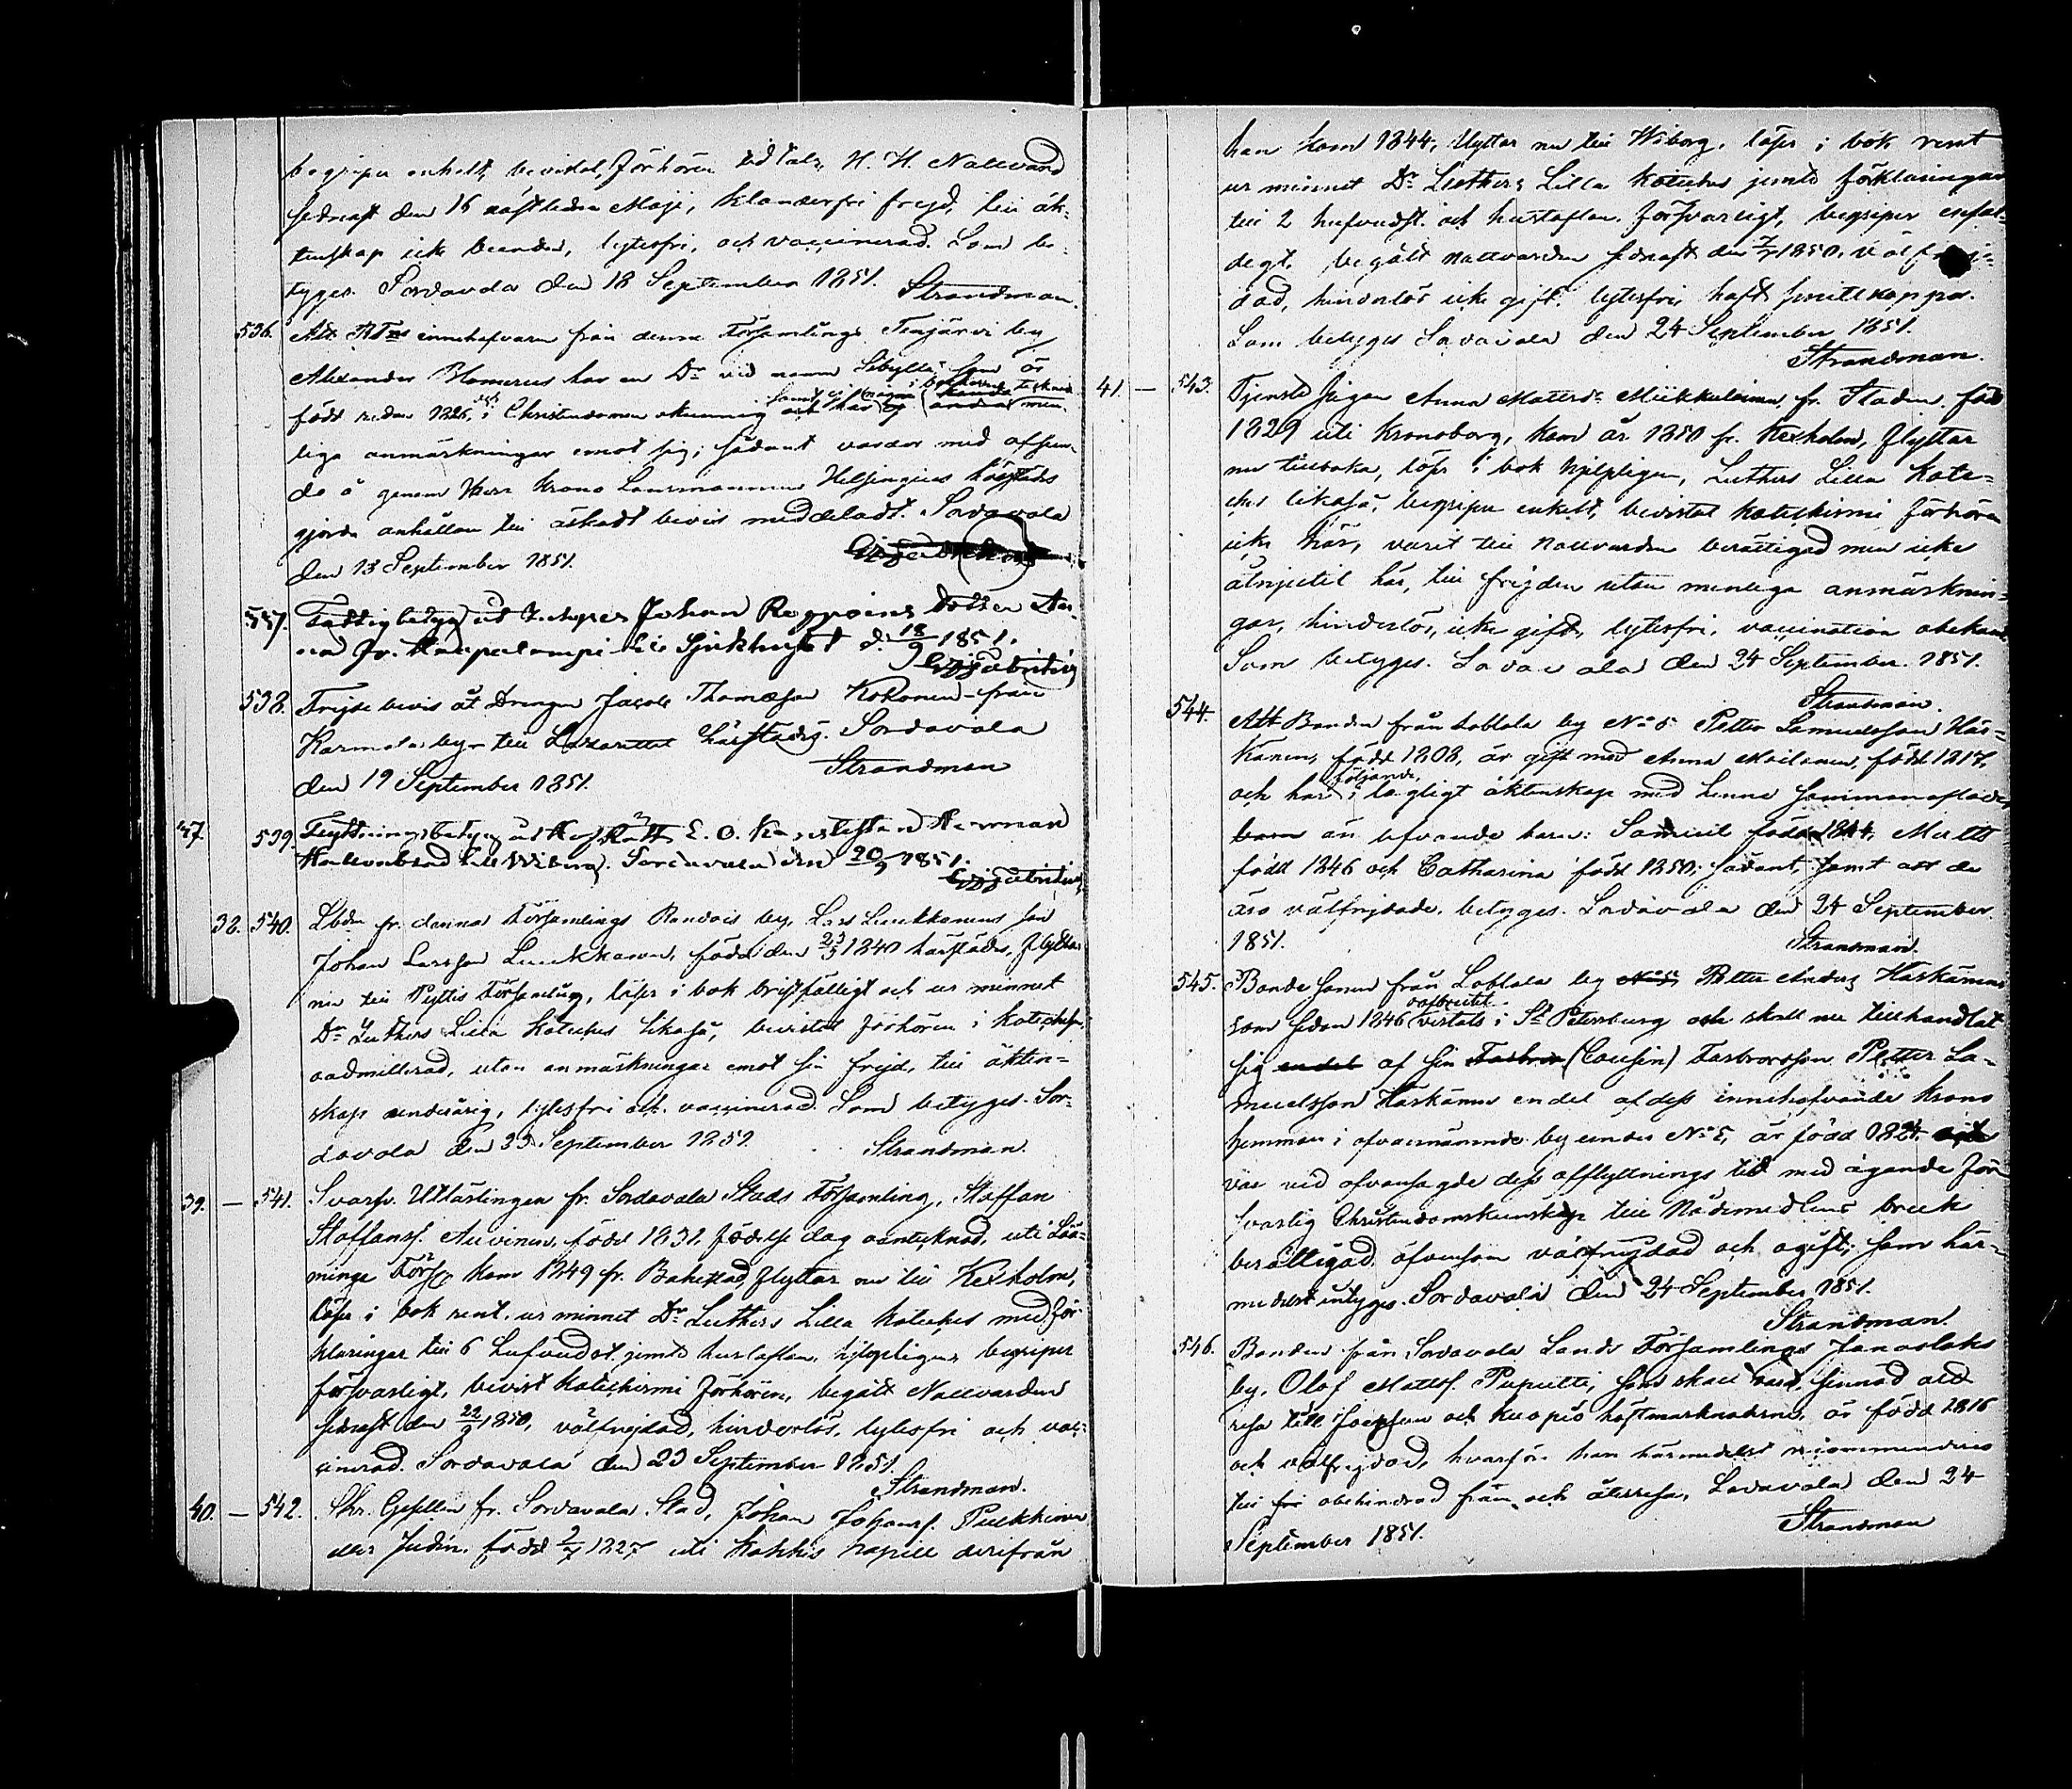 begriper enkelt, bevistat Förhören H. H. Nattvard
sednast den 16 nästledne Maji, klanderfri frejd, till äk-
tenskap icke bunden, lytesfri, och vaccinerad. Som be-
tyges. Sordavala den 18 September 1851. Strandman.
536. Att innehafvaren från denna Församlings by
Alexander Homerus har en Dr vid namn Sibylla, som är
född sedan 1826, i Christendomen okunnig och har ej andra men-
liga anmärkningar emot sig; sådant varder med afseen-
de å genom Herr Krono Länsmannen Helsingius härstädes
gjorde anhållan till äskadt bevis meddeladt. Sordavala
den 13 September 1851.
537. Fattigbetyg åt Johan Reppoins dotter
fr. till Sjukhuset d. 18/9 1851.
538. Frejdebevis åt Drengen Jacob Thomasson Kokonen från
Karmala by till Lazarettet härstädes. Sordavala
den 19 September 1851. Strandman
47. 539. Flyttningsbetyg åt E. O. Herman
till Wiborg. Sordavala den 20/9 1851.
38. 540. fr. denna Församlings by, Lars Luukkonens son
Johan Larsson Luukkonen, född den 23/5 1840 härstädes, flyttar
nu till Pyttis Församling, läser i bok bristfälligt och ur minnet
Dr Luthers Lilla Kateches likaså, bevistat förhören i Kateches,
oadmitterad, utan anmärkningar emot sin frejd, till äkten-
skap underårig, lytesfri och vaccinerad. Som betyges. Sor-
davala den 23 September 1851. Strandman.
39. — 541. Svarfv. Utlärlingen fr. Sordavala Stads Församling, Staffan
Staffanss. Auvinen, född 1831, födelse dag oantecknad, uti
Förs. kom 1849 fr. flyttar nu till Kexholm,
läser i bok rent, ur minnet Dr Luthers Lilla Kateches med för-
klaringar till 6 Hufvudst. jemte hustaflan, hjelpligen, begriper
försvarligt, bevist Katechismi Förhören, begått Nattvarden
sednast den 22/9 1850, välfrejdad, hinderlös, lytesfri och vac-
cinerad. Sordavala den 23 September 1851.
Strandman.
40. — 542. Skr. Gesellen fr. Sordavala Stad, Johan Johanss. Pukkinen
eller Judin, född 2/7 1827 uti Kakkis kapell derifrån
han kom 1844, flyttar nu till Wiborg, läser i bok rent
ur minnet Dr Luthers Lilla Kateches jemte förklaringar
till 2 hufvudst. och hustaflan försvarligt, begriper enfal-
digt, begått nattvarden sednast den 7/7 1850, välfrej-
dad, hinderlös icke gift, lytesfri, haft smittkoppor.
Som betyges Sordavala den 24 September 1851.
Strandman.
41. — 543. Tjenste Pigan Anna Mattsdr Miikkulainen, fr. Staden, född
1829 uti Kronoborg, kom år 1850 fr. Kexholm, flyttar
nu tillbaka, läser i bok hjelpligen, Luthers Lilla Kate-
ches likaså, begriper enkelt, bevistat Katechismi Förhören
icke här, varit till Nattvarden berättigad men icke
åtnjutit här, till frejden utan menliga anmärknin-
gar, hinderlös, icke gift, lytesfri, vaccination obekant.
Som betyges. Sordavala den 24 September 1851.
Strandman.
544. Att Bonden från Loblola by No 5 Petter Samuelsson Här-
känen, född 1808, är gift med Anna född 1817,
och har följande, i lagligt äktenskap med henne sammanaflade
barn än lefvande barn: Samuel född 1844, Matts
född 1846 och Catharina född 1850; sådant, samt att de
äro välfrejdade, betyges. Sordavala den 24 September
1851. Strandman.
545. Bonde sonen från Loblola by No 5 Petter Anders Härkänen
som sedan 1846 oafbrutit vistats i St Petersburg och skall nu tillhandlat
sig endel af sin Farbror (Cousin) Farbrorsson Petter Sa-
muelsson Härkänen endel af dess innehafvande krono
hemman i ofvannämnde by under No 5, är född 1824
var vid ofvansagde dess afflyttnings tid med ägande för-
svarlig Christendomskunskap till Nådemedlens bruk
berättigad, äfvensom välfrejdad och ogift; som här-
medelst intyges. Sordavala den 24 September 1851.
Strandman.
546. Bonden från Sordavala Lands Församlings Janaslaks
by, Olof Mattss. Puputti, som skall vara sinnad att
resa till Joensuu och Kuopio höstmarknaderne, är född 1816
och välfrejdad, hvarför han härmedelst recommenderas
till fri obehindrad fram och återresa, Sordavala den 24
September 1851. Strandman